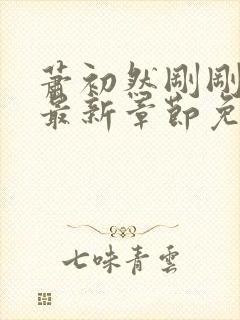 蕭初然剛剛
最新章節免
七味青雲